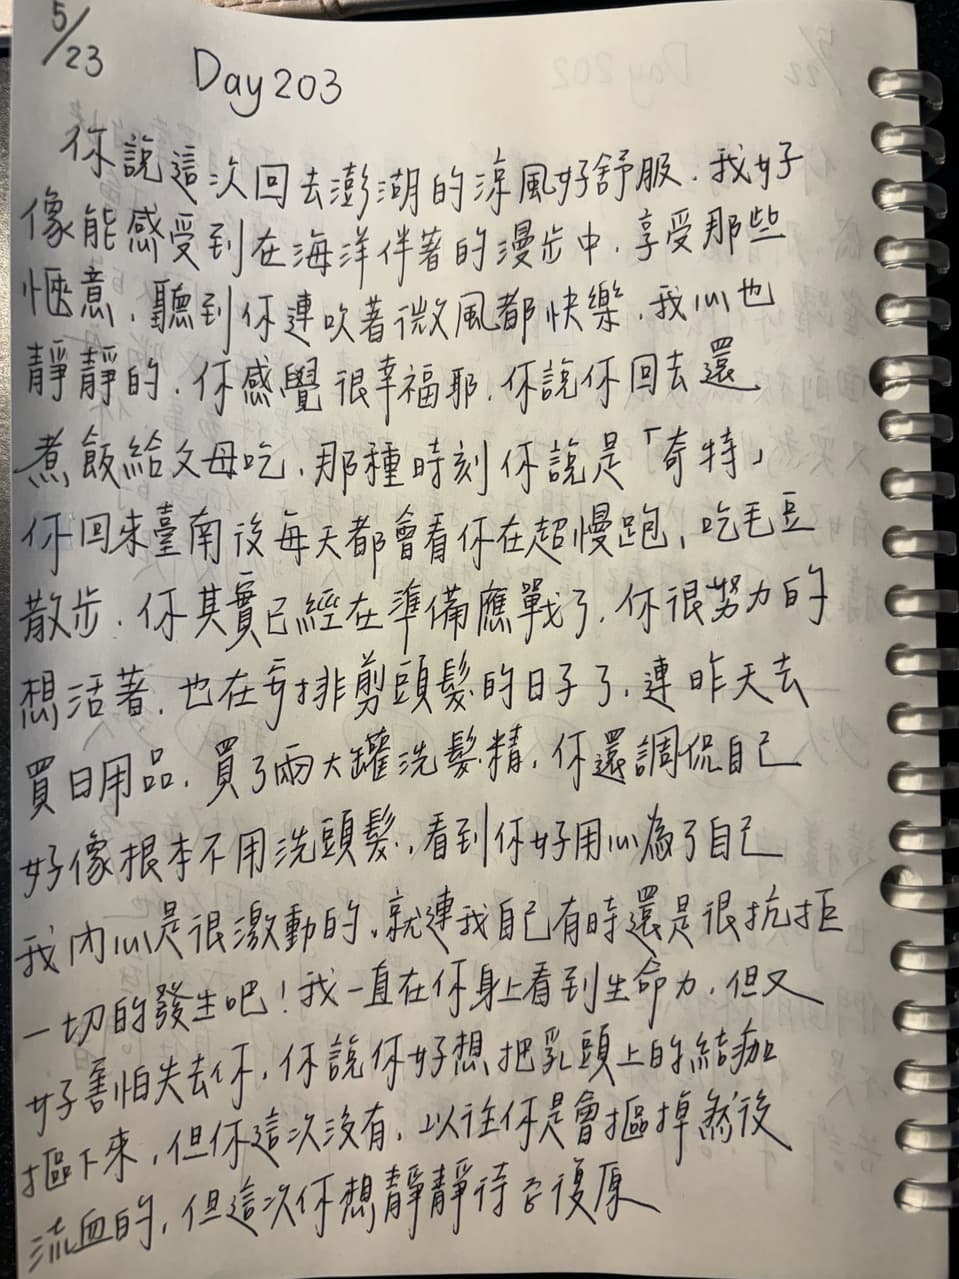 5/23
Day 203
你說這次回去澎湖的涼風好舒服.我好
像能感受到在海洋伴著的漫步中,享受那些
愜意,聽到你連吹著微風都快樂,我心也
靜靜的.你感覺很幸福耶.你說你回去還
煮飯給父母吃,那種時刻你說是「奇特」
你回來臺南後每天都會看你在超慢跑、吃毛豆
散步.你其實已經在準備應戰了.你很努力的
想活著.也在安排剪頭髮的日子了,連昨天去
買日用品,買了兩大罐洗髮精,你還調侃自己
好像根本不用洗頭髮,看到你好用心為了自己
我內心是很激動的,就連我自己有時還是很抗拒
一切的發生吧!我一直在你身上看到生命力,但又
好害怕失去你,你說你好想把乳頭上的結痂
摳下來,但你這次沒有,以往你是會摳掉然後
流血的,但這次你想靜靜待它復原